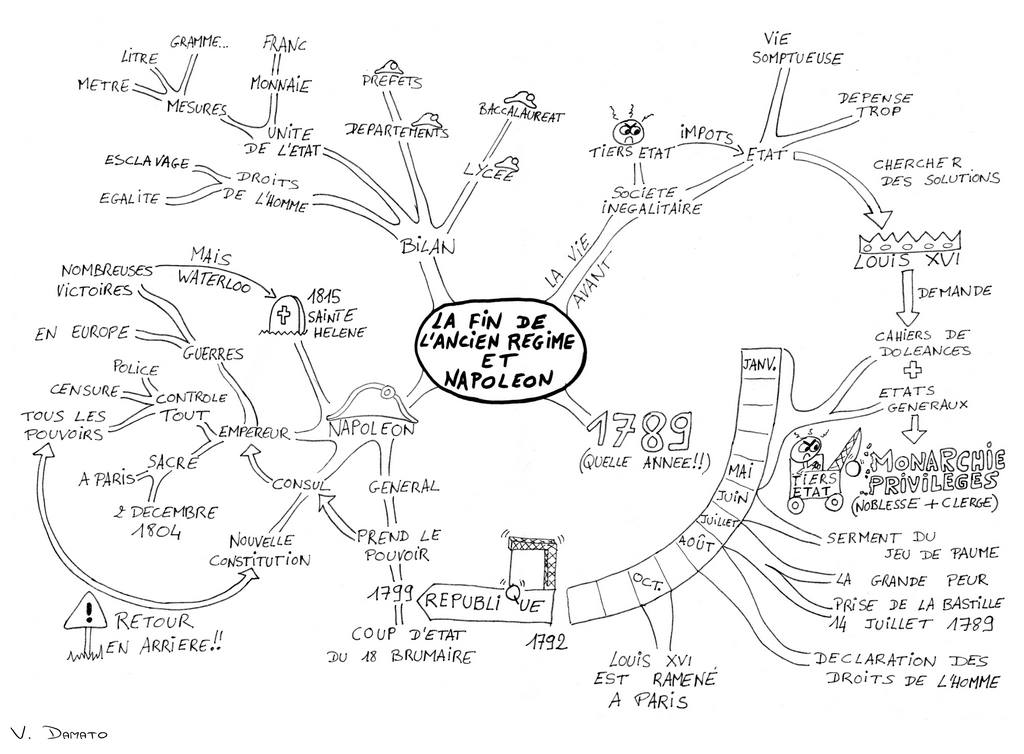 LA FIN DE
L'ANCIEN REGIME
ET
NAPOLEON
LA VIE
AVANT
SOCIETE
INEGALITAIRE
TIERS ETAT
IMPOTS
ETAT
VIE
SOMPTUEUSE
DEPENSE
TROP
CHERCHER
DES SOLUTIONS
LOUIS XVI
DEMANDE
CAHIERS DE
DOLEANCES
+
ETATS
GENERAUX
TIERS
ETAT
MONARCHIE
PRIVILEGES
(NOBLESSE + CLERGE)
1789
(QUELLE ANNEE!!)
JANV.
MAI
JUIN
JUILLET
AOÛT
OCT.
SERMENT DU
JEU DE PAUME
LA GRANDE PEUR
PRISE DE LA BASTILLE
14 JUILLET 1789
DECLARATION DES
DROITS DE L'HOMME
LOUIS XVI
EST RAMENÉ
A PARIS
REPUBLIQUE
1792
NAPOLEON
GENERAL
PREND LE
POUVOIR
1799
COUP D'ETAT
DU 18 BRUMAIRE
CONSUL
NOUVELLE
CONSTITUTION
EMPEREUR
SACRE
A PARIS
2 DECEMBRE
1804
CONTROLE
TOUT
POLICE
CENSURE
TOUS LES
POUVOIRS
! RETOUR
EN ARRIERE!!
GUERRES
EN EUROPE
NOMBREUSES
VICTOIRES
MAIS
WATERLOO
1815
SAINTE
HELENE
BILAN
DROITS
DE L'HOMME
ESCLAVAGE
EGALITE
UNITE
DE L'ETAT
MESURES
METRE
LITRE
GRAMME...
MONNAIE
FRANC
DEPARTEMENTS
PREFETS
LYCEE
BACCALAUREAT
V. DAMATO